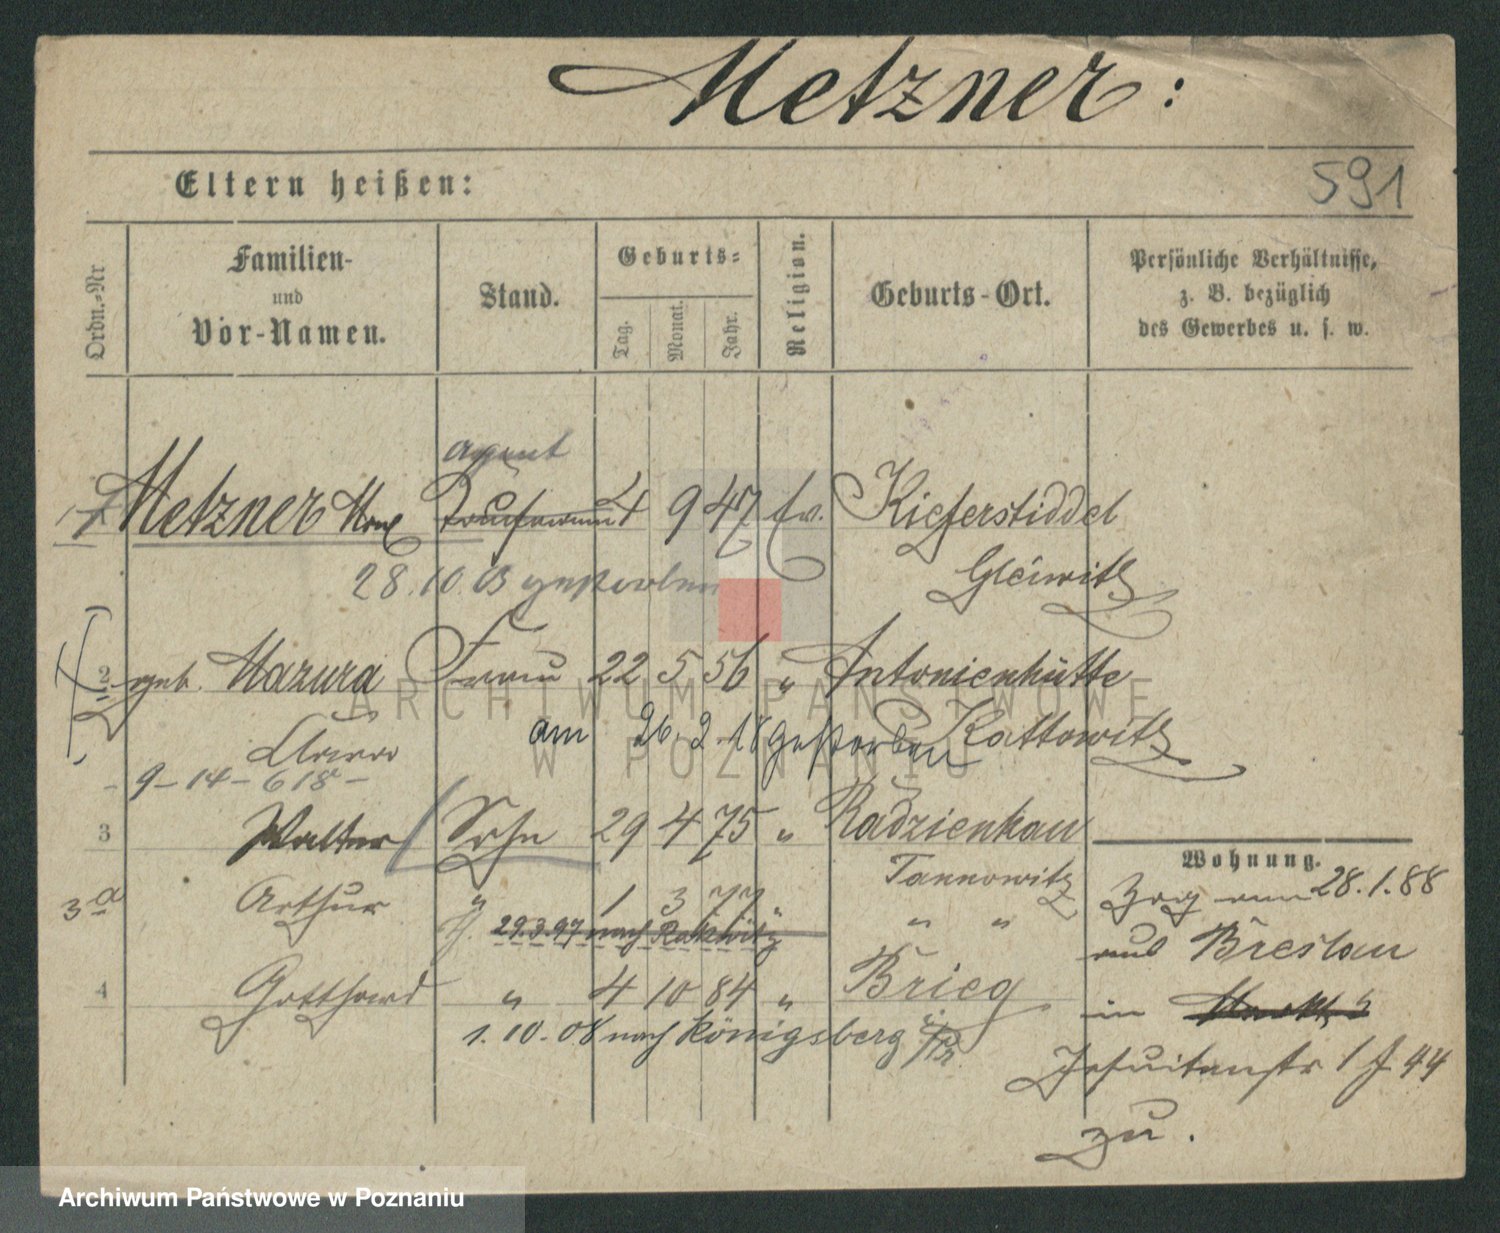 Metzner:
591
Eltern heißen:
Ordn.-Nr
Familien-
und
Vor-Namen.
Stand.
Geburts-
Tag.
Monat.
Jahr.
Religion.
Geburts-Ort.
Persönliche Verhältnisse,
z. B. bezüglich
des Gewerbes u. s. w.
Agent
1 Metzner Max Kaufmann 4 9 47 ev. Kieferstädtel
Gleiwitz
28.10.03 gestorben
2 geb. Mazura Frau 22 5 56 " Antonienhütte
Kattowitz
am 26.2.18 gestorben
9-14-618-
3 Walter Sohn 29 4 75 " Radzienkau
Tarnowitz
3a Arthur " 1 3 77 " " "
29.3.97 nach Rakwitz
4 Gotthard " 4 10 84 " Brieg
1.10.08 nach Königsberg i/Pr
Wohnung.
Zog am 28.1.88
aus Breslau
in Markt 5
Jesuitenstr 1 J. 44
zu.
ARCHIWUM PAŃSTWOWE
W POZNANIU
Archiwum Państwowe w Poznaniu